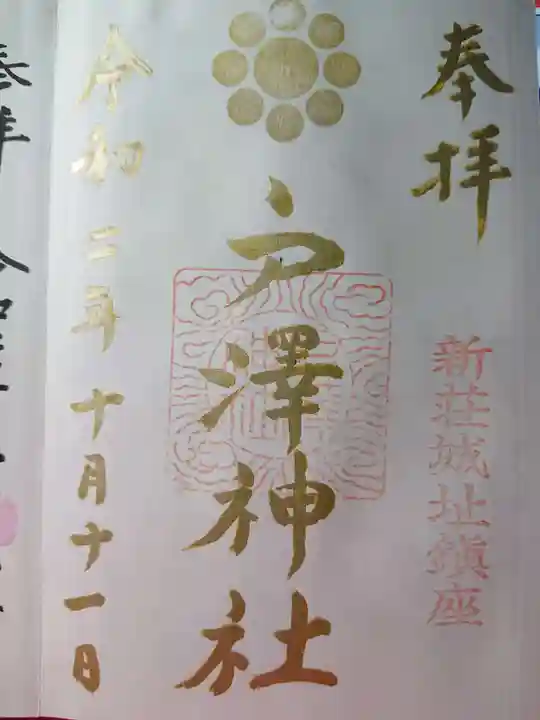 奉拝
新荘城址鎮座
戸澤神社
令和二年十月十一日